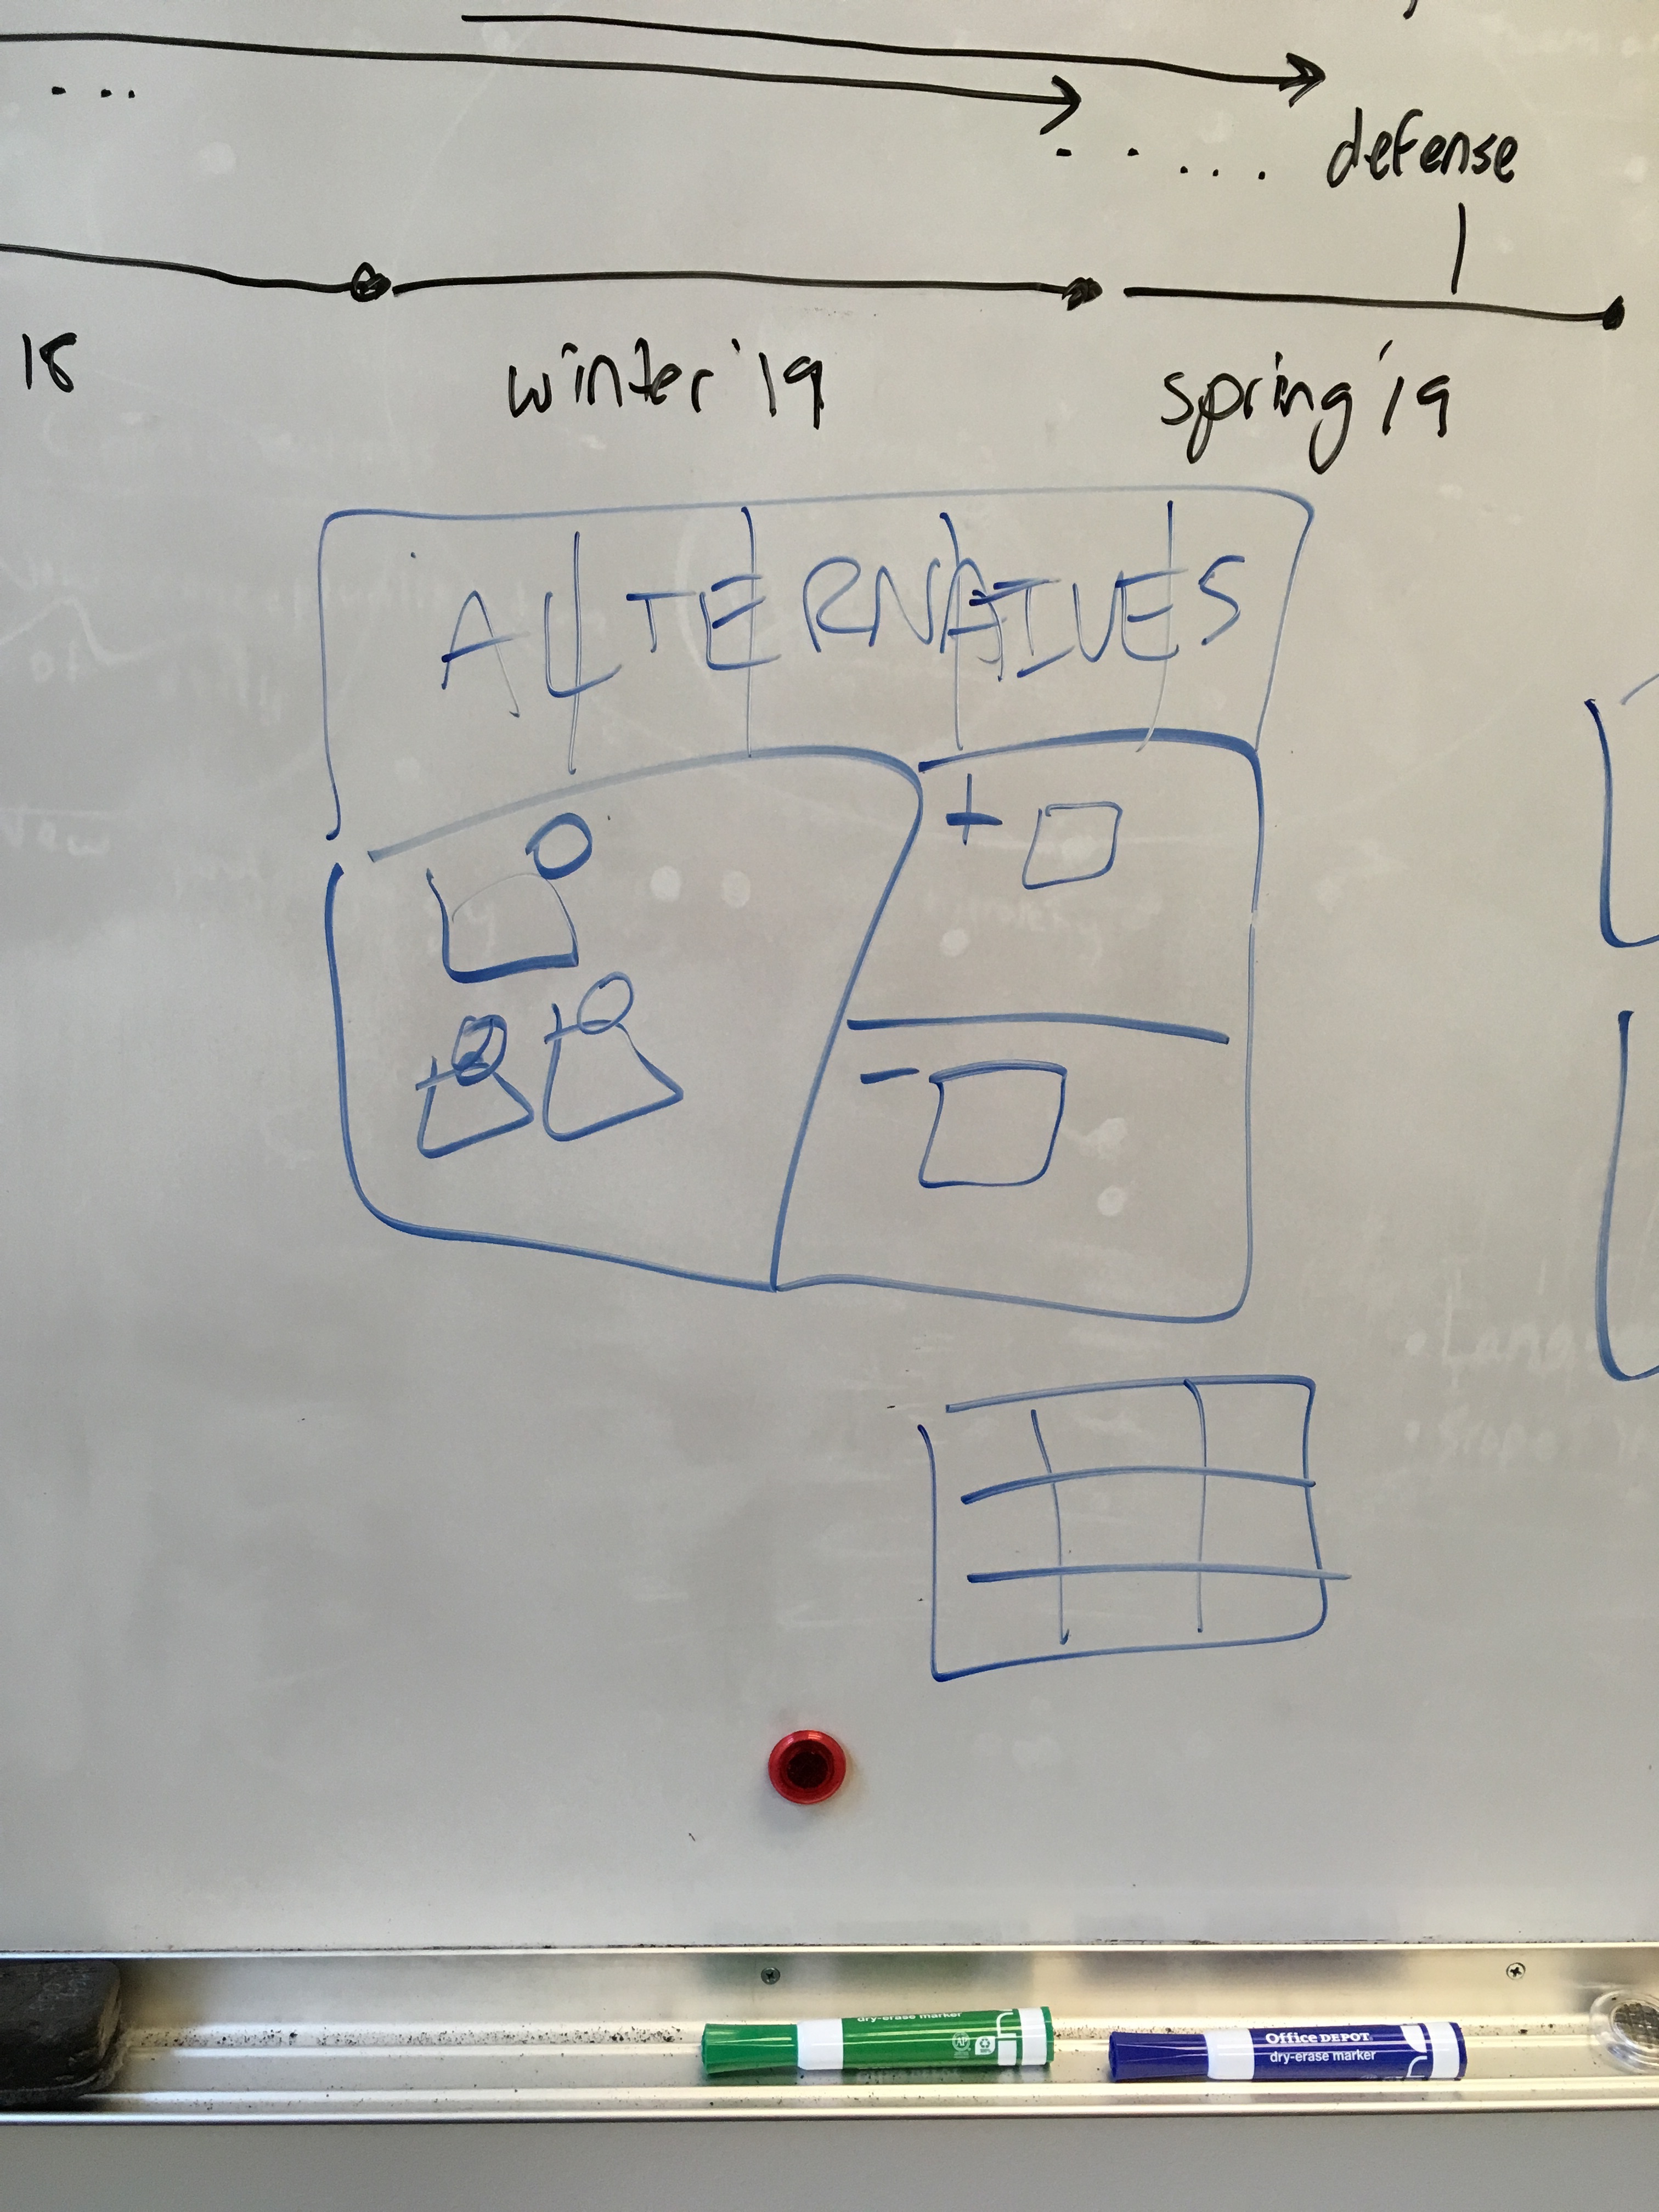 defense
18
winter '19
spring '19
ALTERNATIVES
+
-
dry-erase marker
Office DEPOT
dry-erase marker